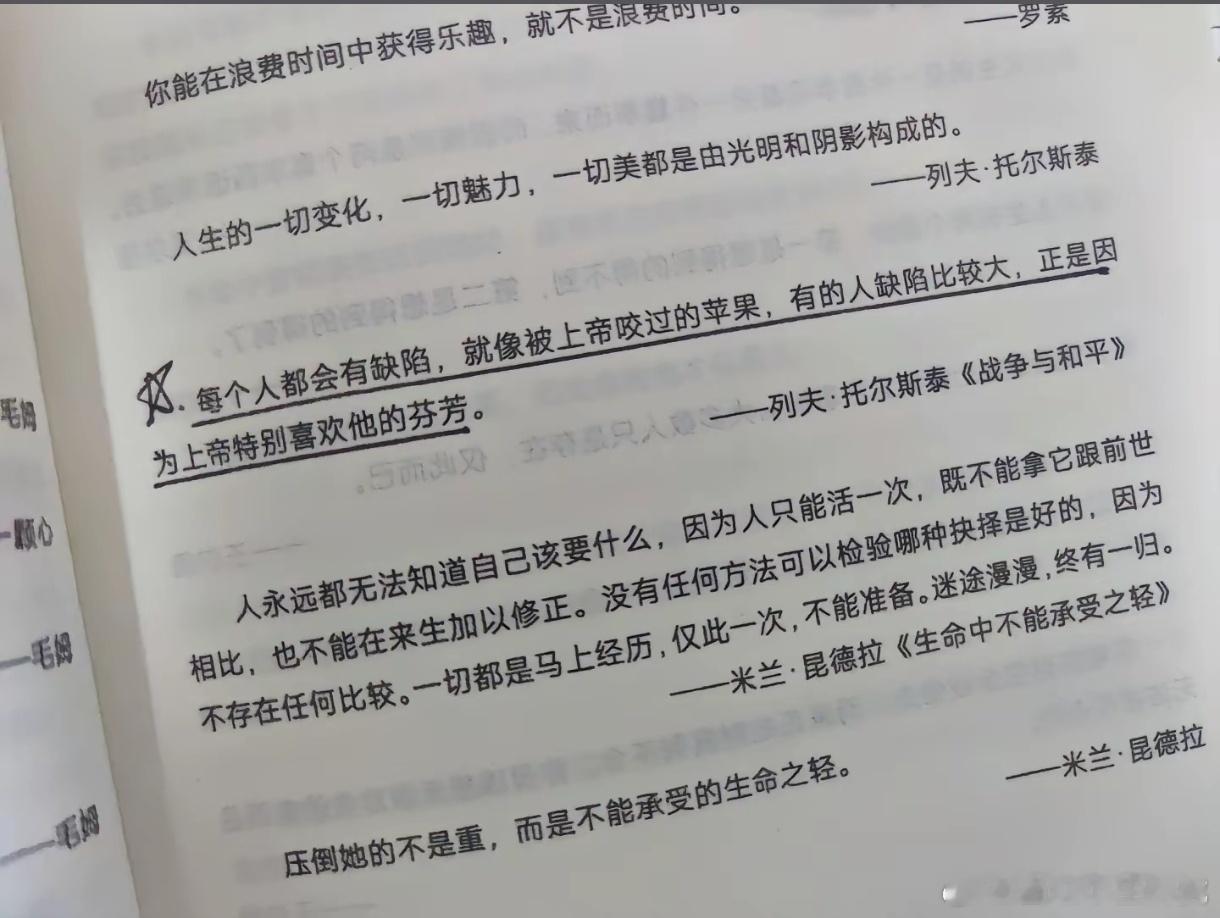 你能在浪费时间中获得乐趣，就不是浪费时间。
——罗素
人生的一切变化，一切魅力，一切美都是由光明和阴影构成的。
——列夫·托尔斯泰
每个人都会有缺陷，就像被上帝咬过的苹果，有的人缺陷比较大，正是因
为上帝特别喜欢他的芬芳。
——列夫·托尔斯泰《战争与和平》
人永远都无法知道自己该要什么，因为人只能活一次，既不能拿它跟前世
相比，也不能在来生加以修正。没有任何方法可以检验哪种抉择是好的，因为
不存在任何比较。一切都是马上经历，仅此一次，不能准备。迷途漫漫，终有一归。
——米兰·昆德拉《生命中不能承受之轻》
压倒她的不是重，而是不能承受的生命之轻。
——米兰·昆德拉
毛姆
——毛姆
——毛姆